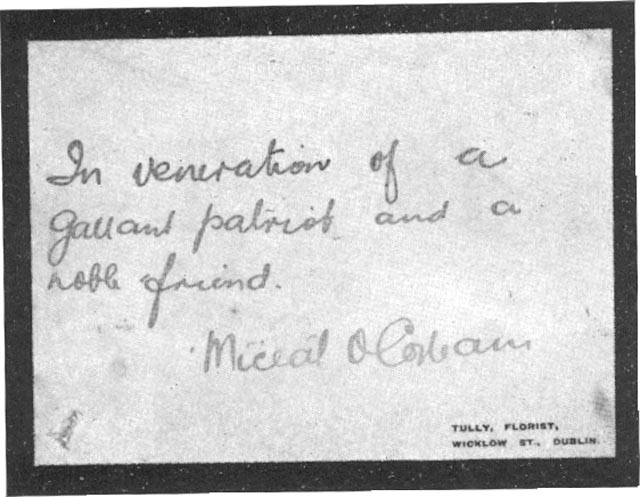 In veneration of a
gallant patriot and a
noble friend.
Míceál O Coileáin
TULLY, FLORIST,
WICKLOW ST., DUBLIN.